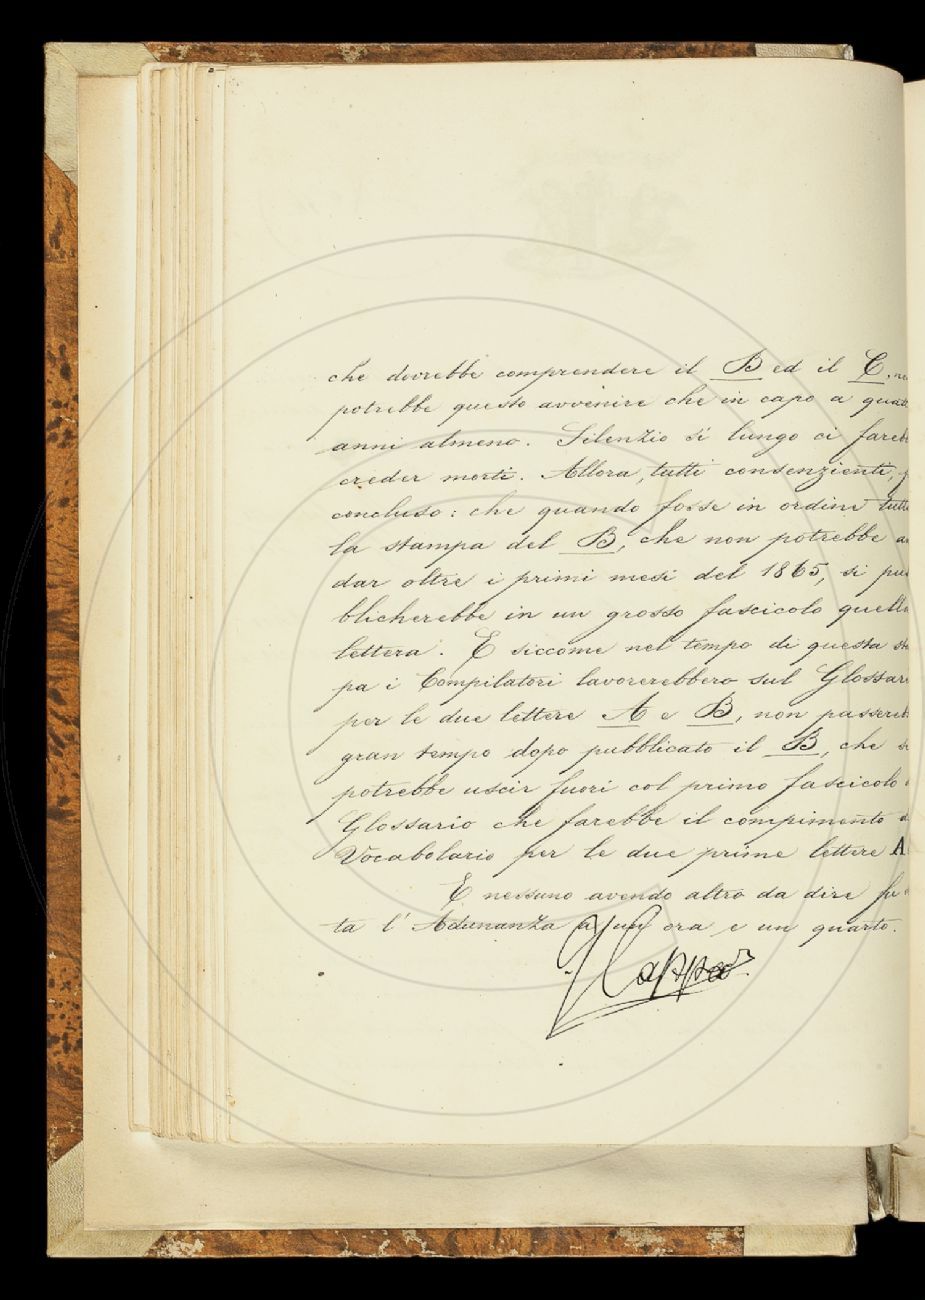 che dovrebbe comprendere il B ed il C, n
potrebbe questo avvenire che in capo a quat
anni almeno. Silenzio sì lungo ci fareb
creder morti. Allora, tutti consenzienti, f
concluso: che quando fosse in ordine tutt
la stampa del B, che non potrebbe an
dar oltre i primi mesi del 1865, si pu
blicherebbe in un grosso fascicolo quella
lettera. E siccome nel tempo di questa sta
pa i Compilatori lavorerebbero sul Glossar
per le due lettere A e B, non passereb
gran tempo dopo pubblicato il B, che s
potrebbe uscir fuori col primo fascicolo
Glossario che farebbe il compimento d
Vocabolario per le due prime lettere A
E nessuno avendo altro da dire fu
ta l' Adunanza a un ora e un quarto.